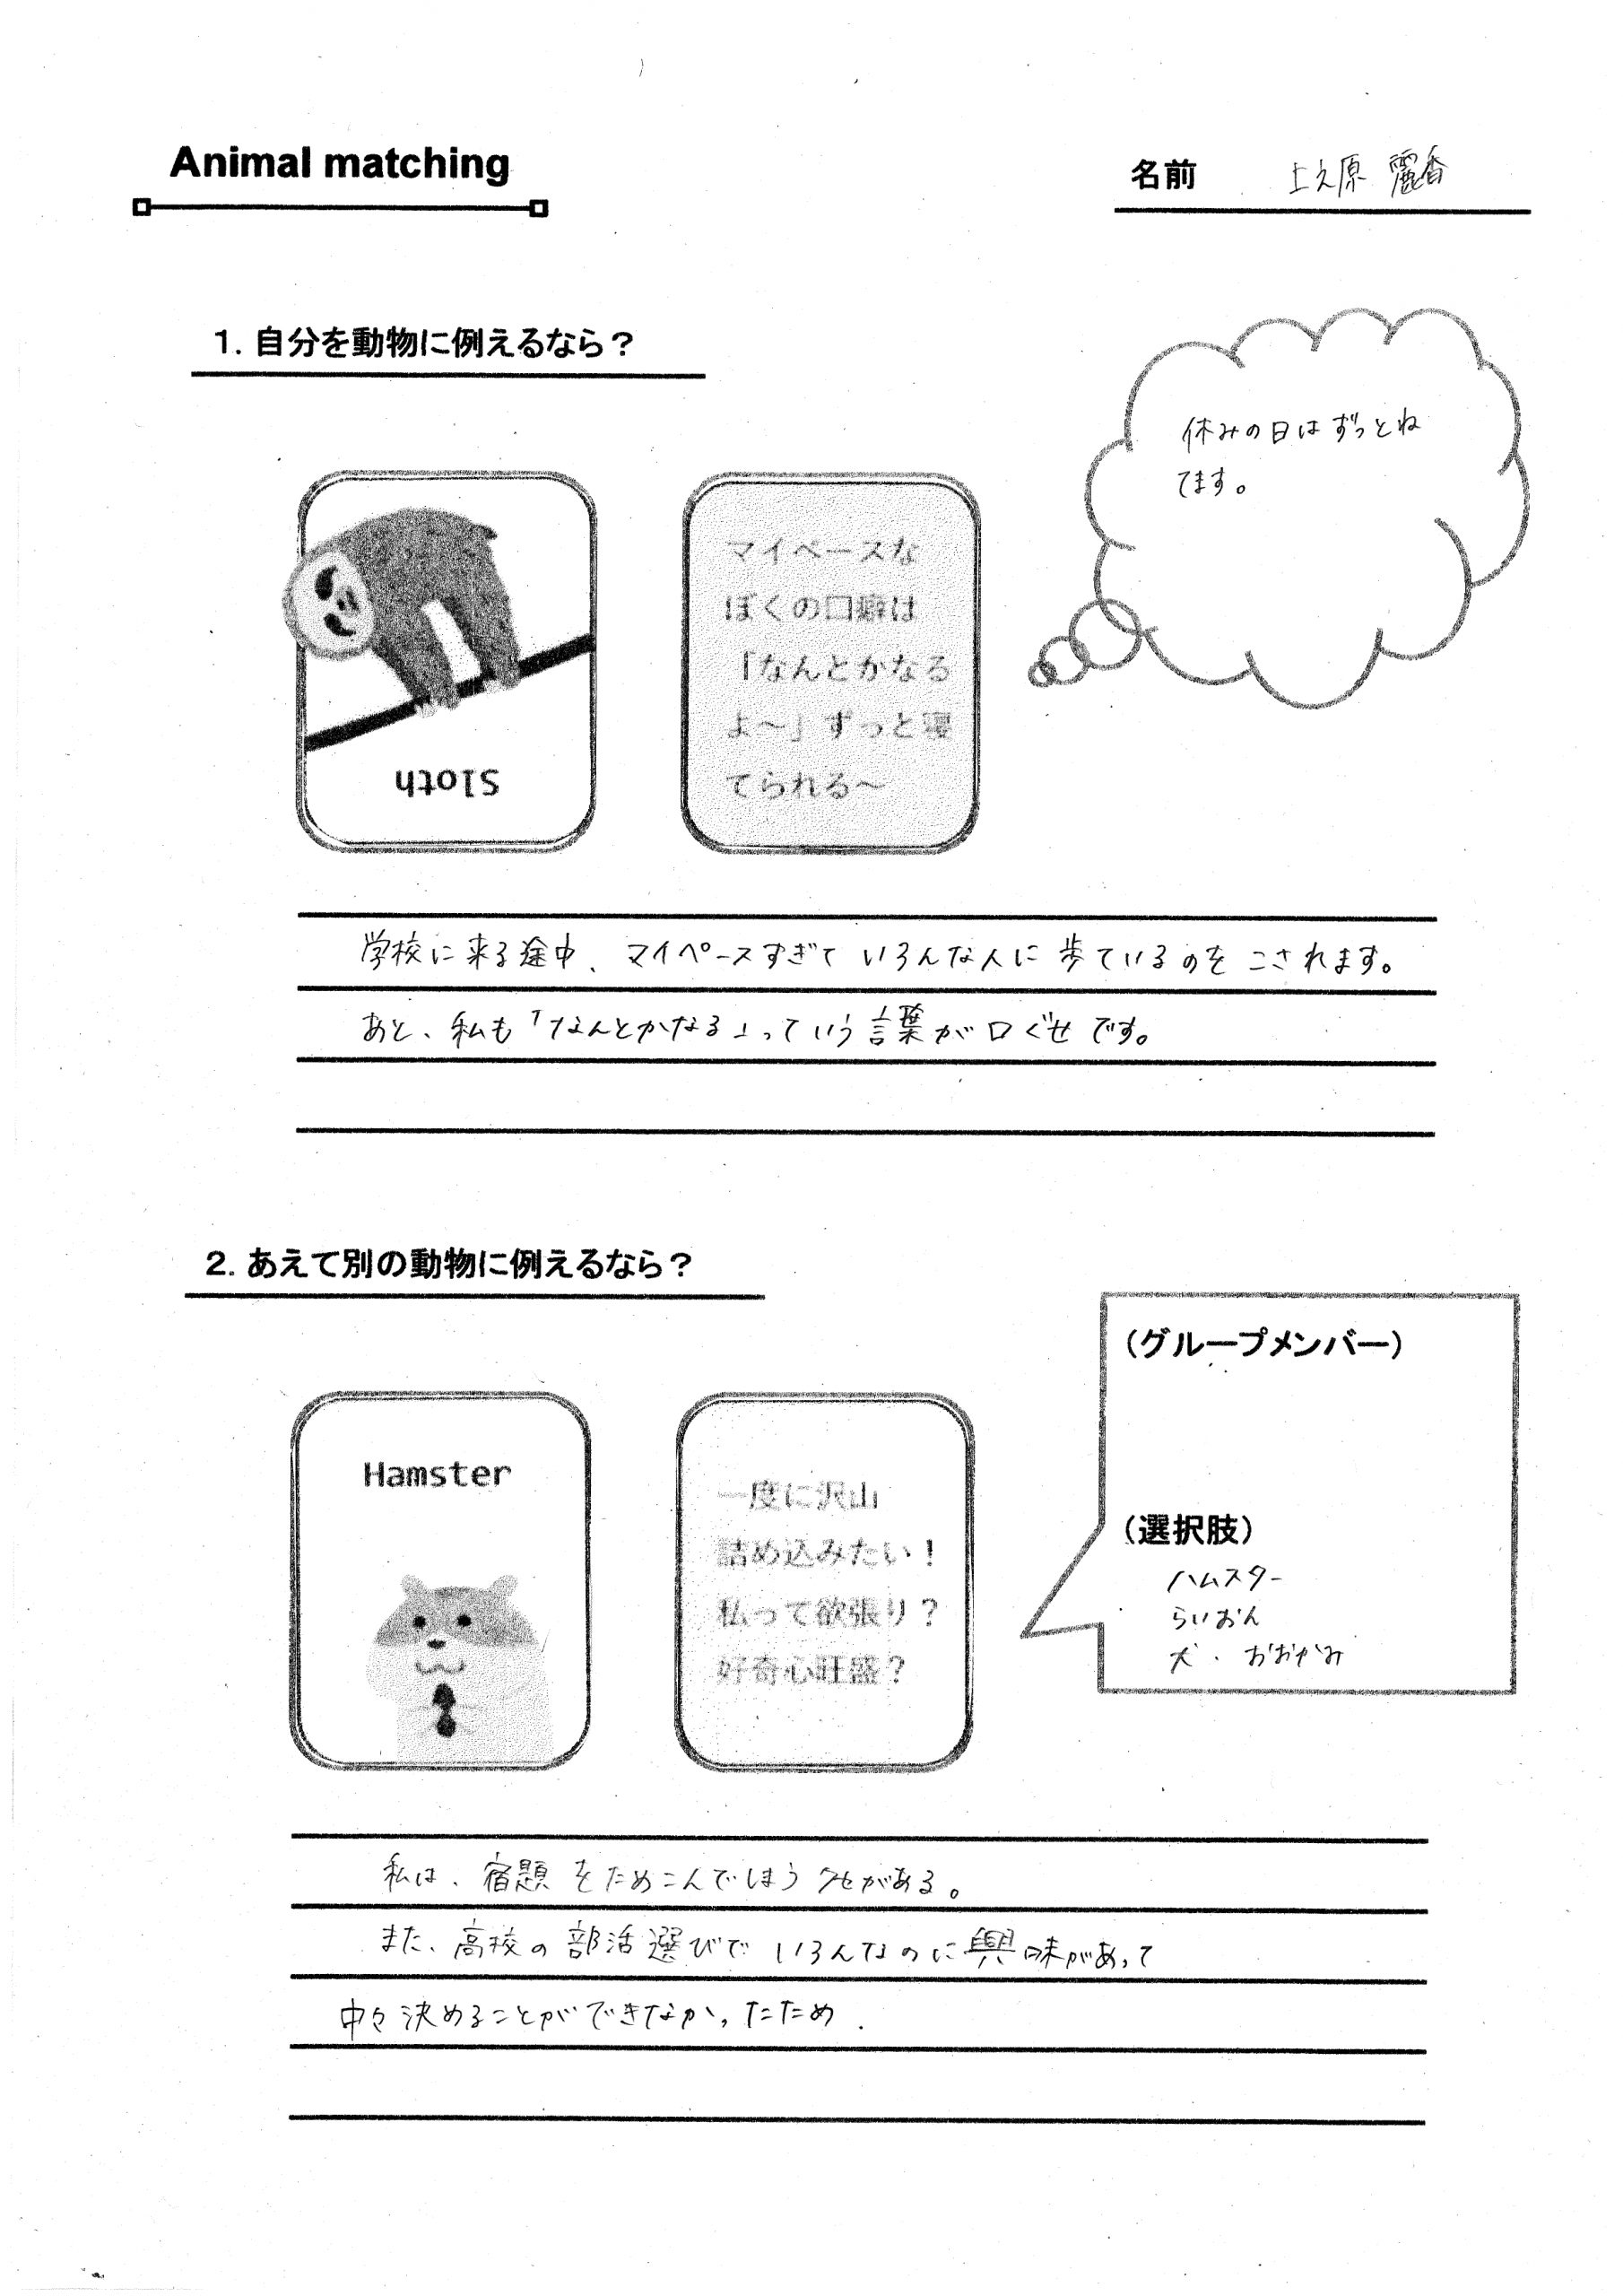 Animal matching
名前 上之原 麗香
1. 自分を動物に例えるなら？
休みの日はずっとね
てます。
Sloth
マイペースな
ぼくの口癖は
「なんとかなる
よ～」ずっと寝
てられる～
学校に来る途中、マイペースすぎていろんな人に歩ているのをこされます。
あと、私も「なんとかなる」っていう言葉が口ぐせです。
2. あえて別の動物に例えるなら？
Hamster
一度に沢山
詰め込みたい！
私って欲張り？
好奇心旺盛？
（グループメンバー）
（選択肢）
ハムスター
らいおん
犬・おおかみ
私は、宿題をためこんでしまうクセがある。
また、高校の部活選びでいろんなのに興味があって
中々決めることができなかったため.